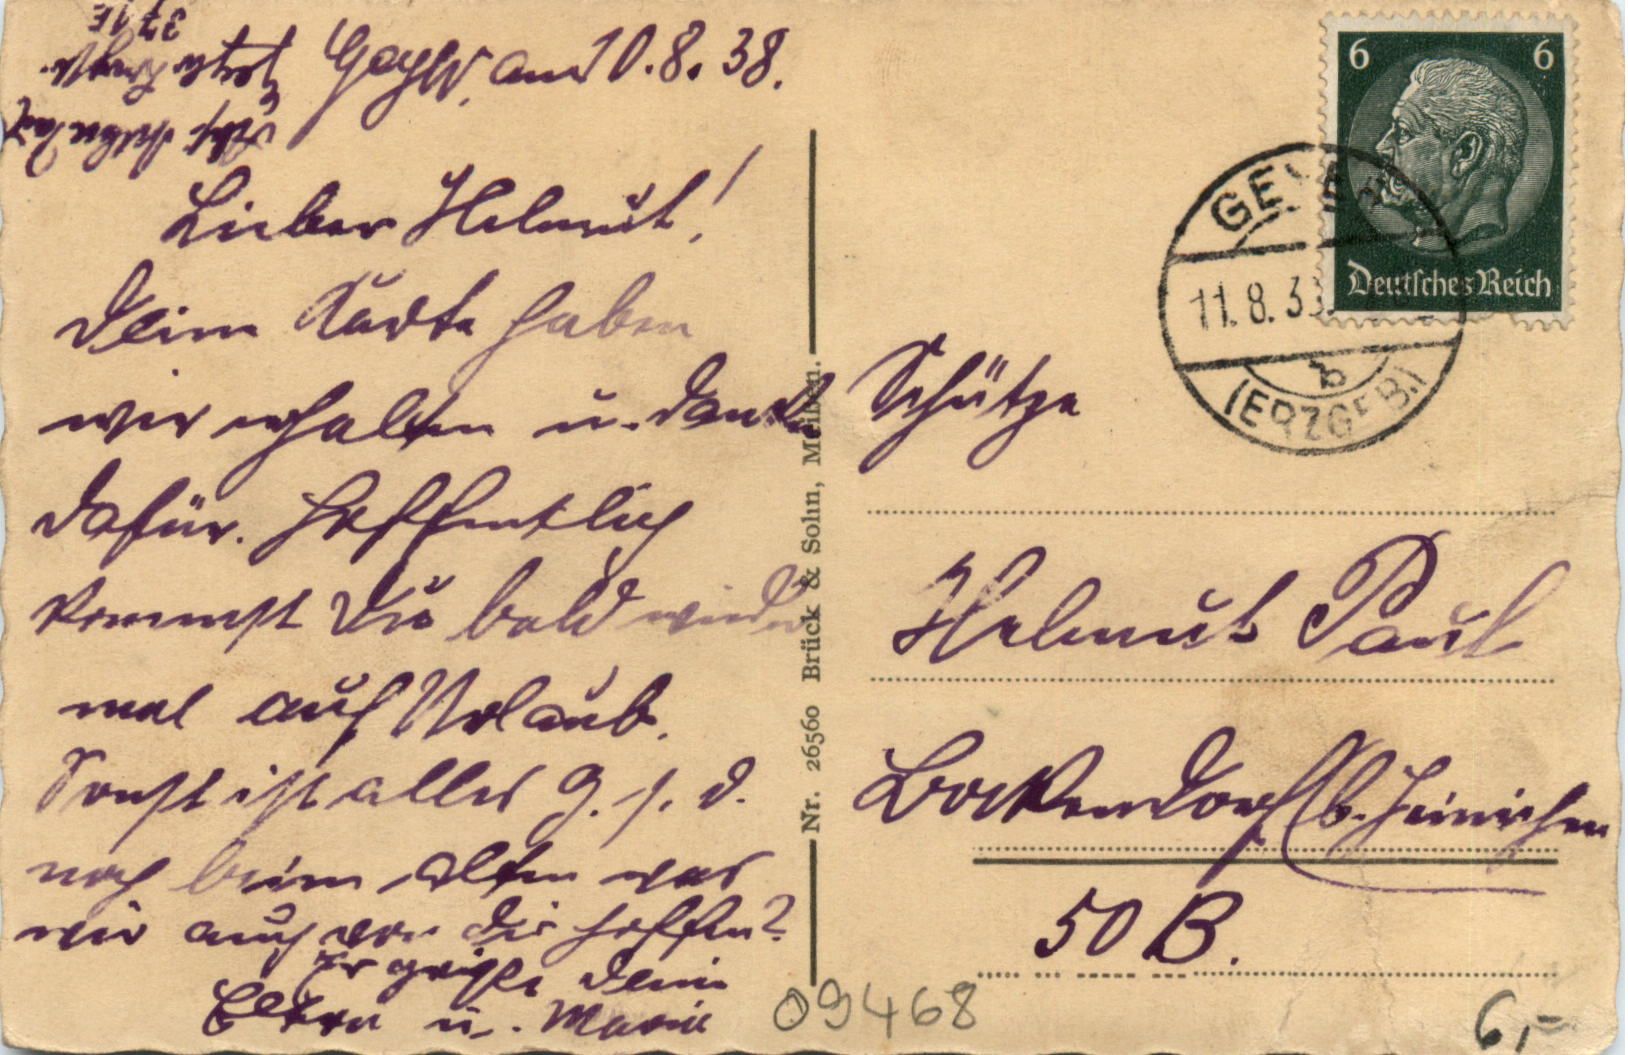 37 1E
Geyer, am 10.8.38.
Lieber Helmut!
Deine Karte haben
wir erhalten u. danken
dafür. Hoffentlich
kommst Du bald wieder
mal auf Urlaub.
Sonst ist alles G. s. d.
noch beim Alten was
wir auch von Dir hoffen?
Es grüßt Deine
Eltern u. Marie
Nr. 26560 Brück & Sohn, Meißen.
6 6
Deutsches Reich
GEYER
11.8.38
b
(ERZGEB.)
Schütze
Helmut Paul
Bockendorf b. Hainichen
50 B.
09468
6,-